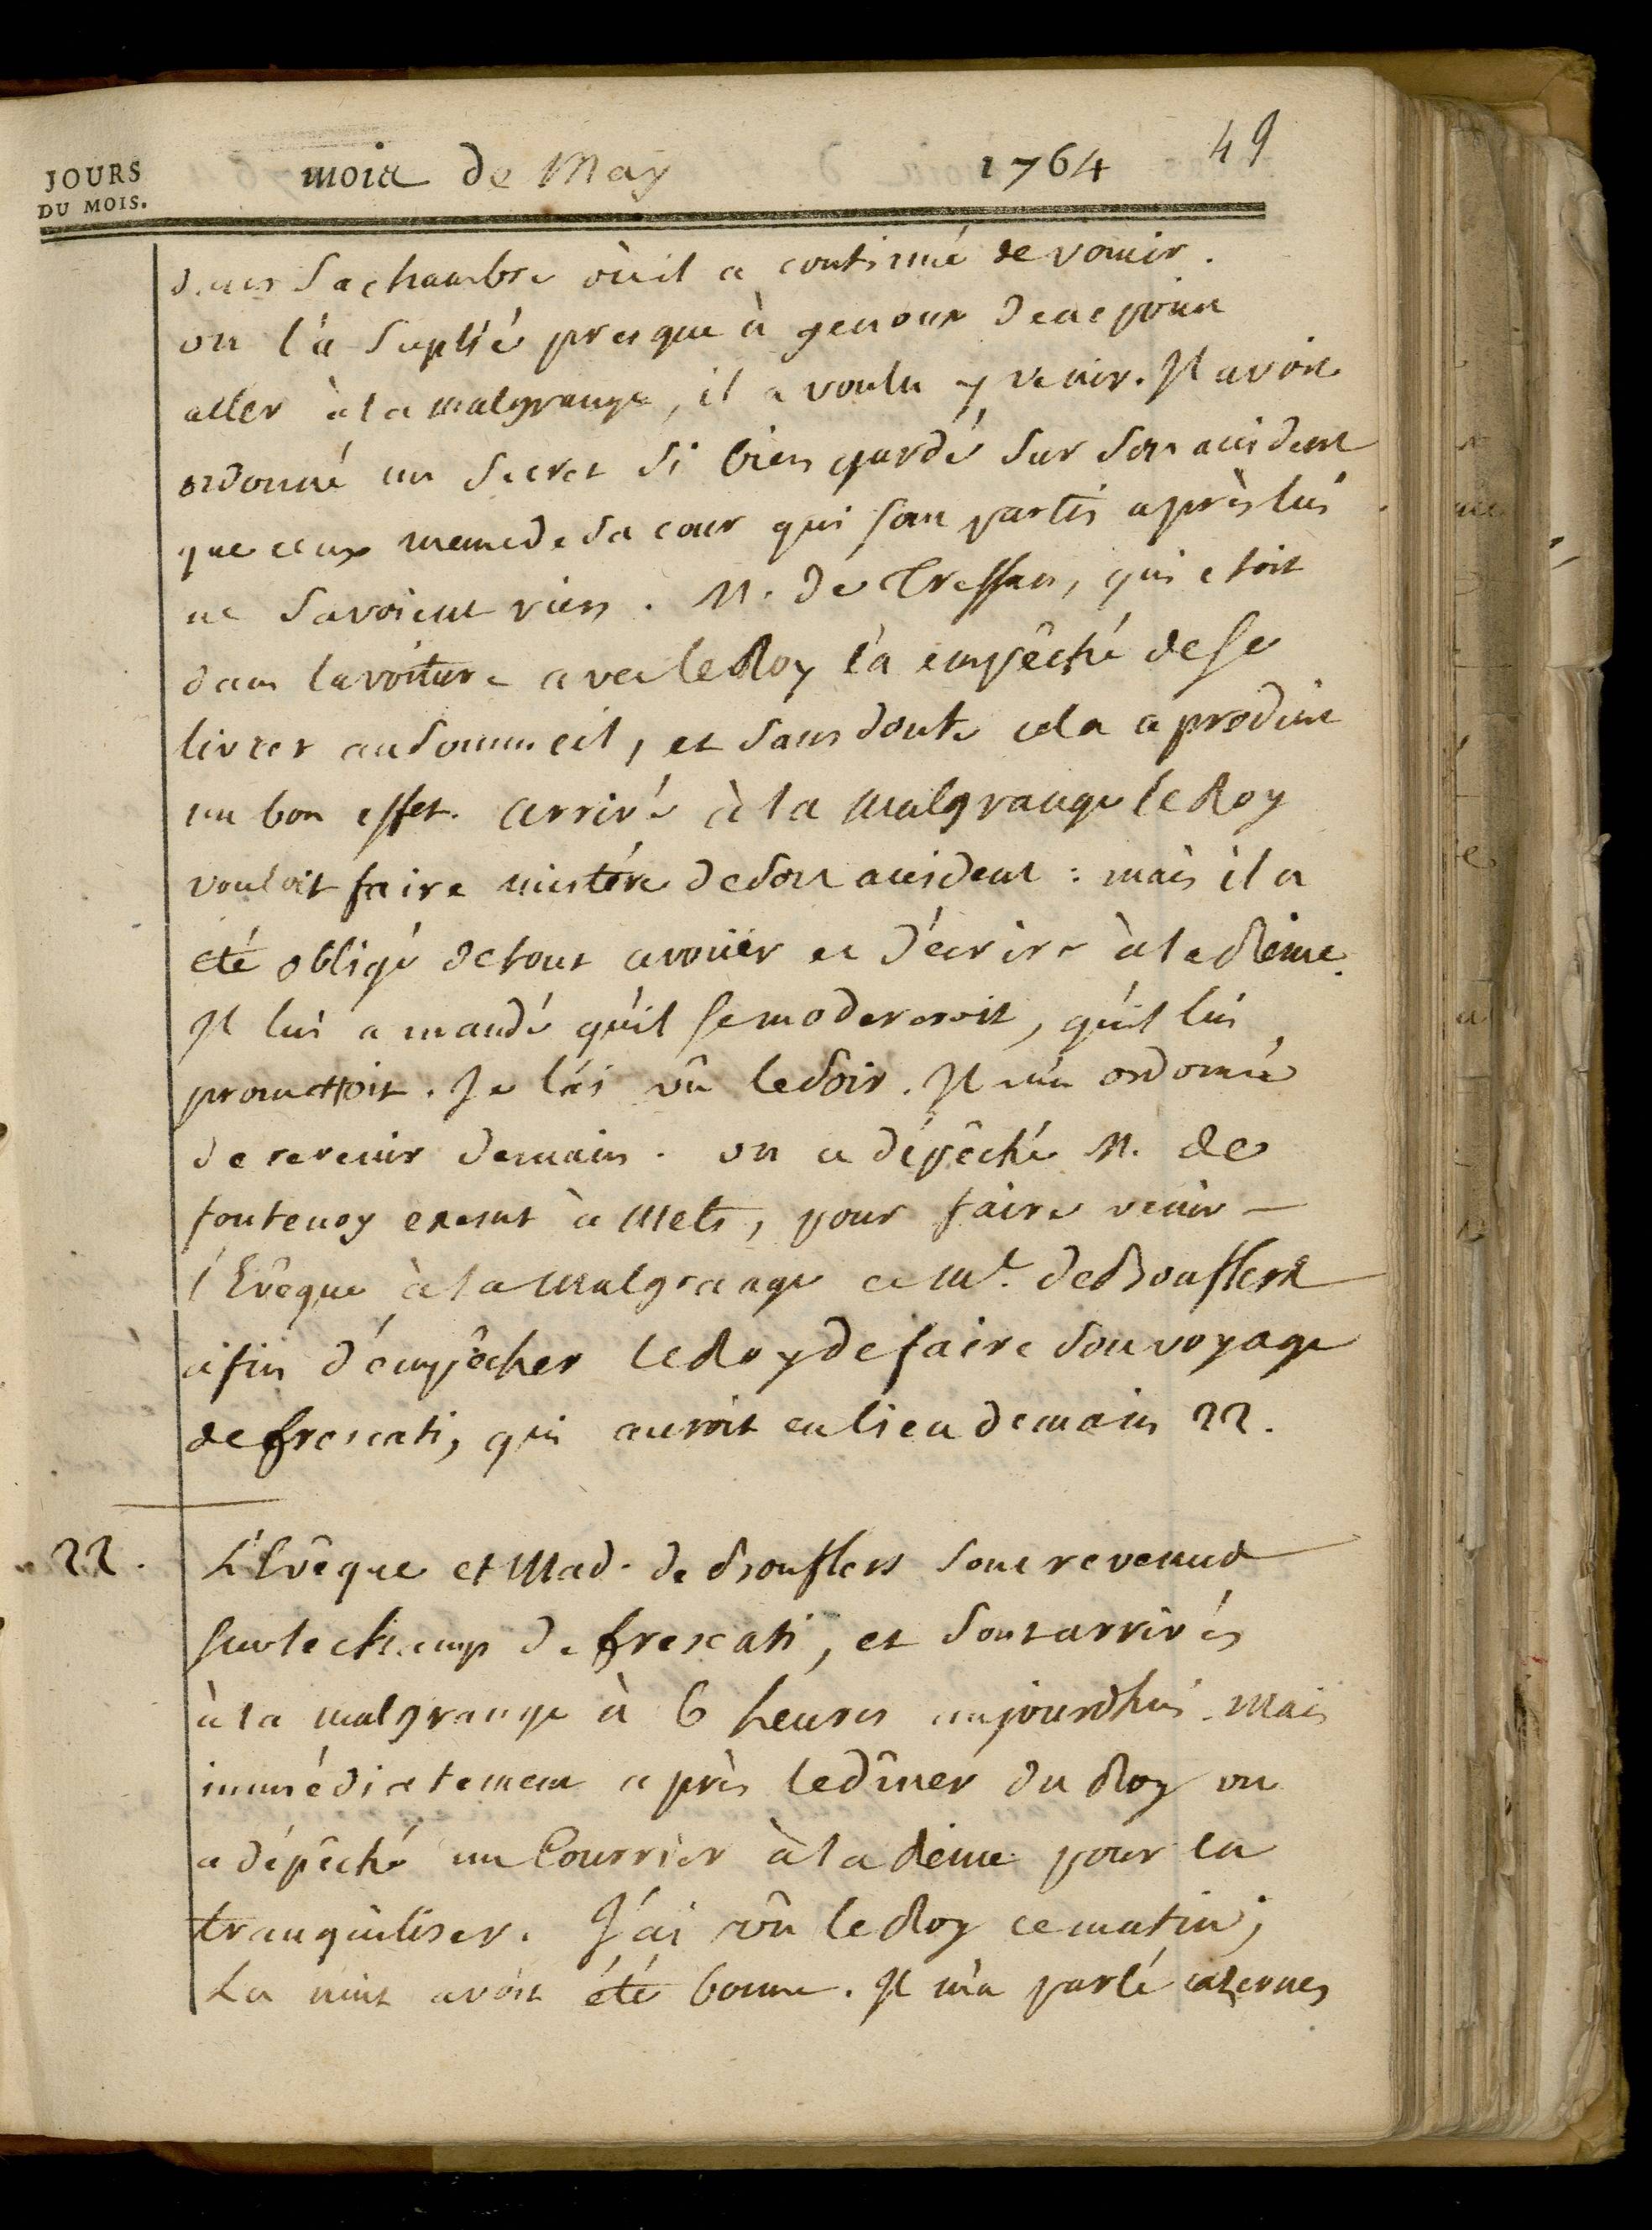 JOURS
DU MOIS.
mois de May 1764 49
dans sa chambre où il a continué de vomir.
on l'a suplié presque à genoux de ne point
aller à la malgrange, il a voulu y venir. Il avoit
ordonné un secret si bien gardé sur son accident
que ceux meme de sa cour qui sont partis après lui
ne savoient rien. M. de Tressan, qui etoit
dans la voiture avec le Roy l'a empêché de se
livrer au sommeil, et sans doute cela a produit
un bon effet. arrivé à la malgrange le Roy
vouloit faire mistére de son accident : mais il a
eté obligé de tout avoüer et d'écrire à la Reine.
Il lui a mandé qu'il se modereroit, qu'il lui
promettoit. Je l'ai vû le soir. Il m'a ordonné
de revenir demain. on a dépêché M. de
fontenoy exemt à Mets, pour faire venir
l'Evêque à la Malgrange et Me. de Bouflers
afin d'empêcher le Roy de faire son voyage
de frescati, qui auroit eu lieu demain 22.
22. L'Evêque et Mad. de Bouflers sont revenus
sur le champ de frescati, et sont arrivés
à la malgrange à 6 heures aujourdhui. Mais
immédiatement après le dîner du Roy on
a dépêché un Courrier à la Reine pour la
tranquiliser. J'ai vû le Roy ce matin;
La nuit avoit été bonne. Il m'a parlé cazernes